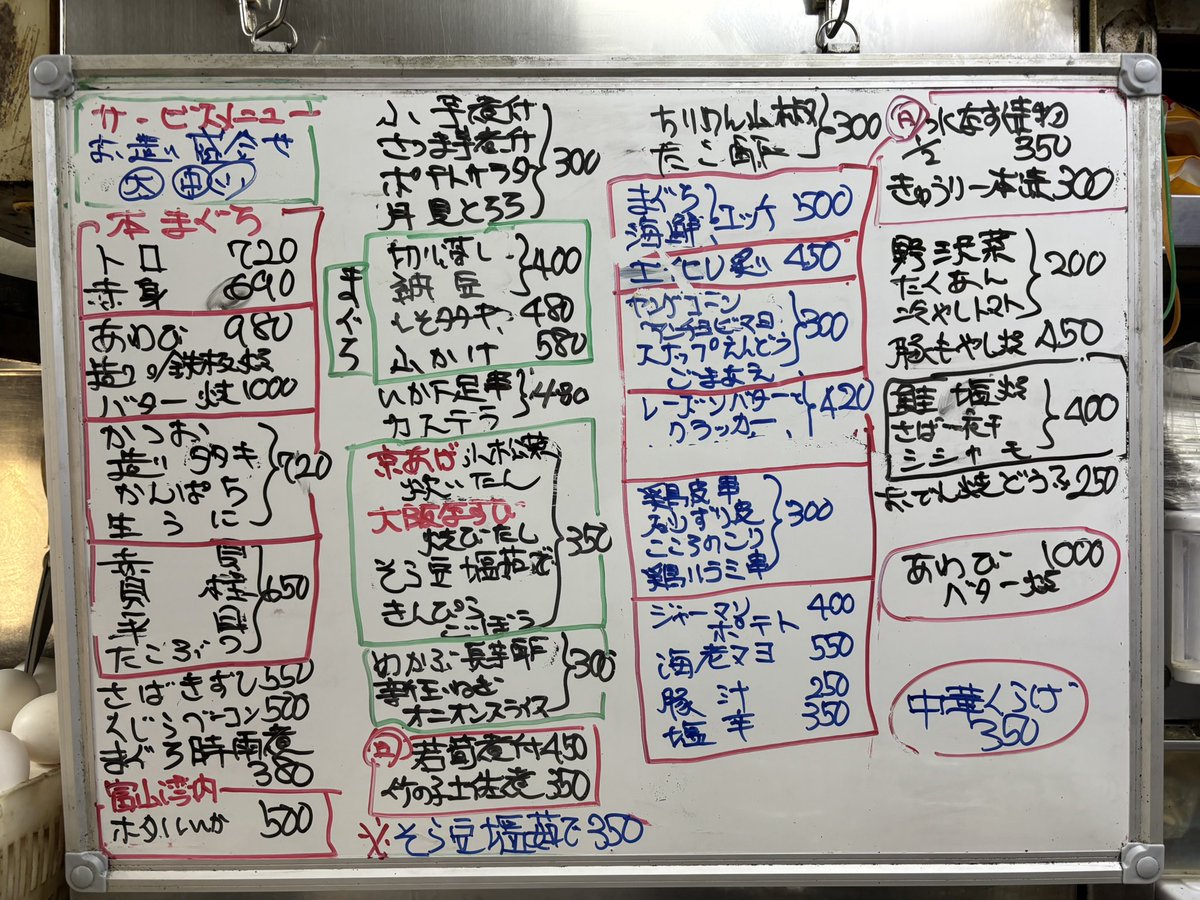 サービスメニュー
お造り盛合せ
大 中 小
本まぐろ
トロ 720
赤身 690
あわび 980
造り/鉄板焼
バター焼 1000
かつお
造り タタキ
かんぱち
生うに
720
赤貝
貝柱
貝
たこぶつ
650
さばきずし 550
えじらベーコン 500
まぐろ時雨煮
380
富山湾内
ホタルいか 500
小芋煮付
さつま芋煮付
ポテトサラダ
月見とろろ
300
まぐろ
切り落し
納豆
400
しそタタキ 480
ふかけ 580
いか下足串
カステラ
480
京あげ 小松菜
炊いたん
大阪なすび
焼びたし
そら豆塩茹で
きんぴら
ごぼう
350
めかぶ長芋
オニオンスライス
300
若筍煮付 450
竹の子土佐煮 350
※そら豆塩茹で 350
ちりめん山椒
たこ酢
300
まぐろ
海鮮
ユッケ 500
エイヒレ炙り 450
ヤングコーン
アンチョビマヨ
スナップえんどう
ごまあえ
300
レーズンバターと
クラッカー
420
鶏皮串
えりずり皮
こころのこり
鶏ハラミ串
300
ジャーマン
ポテト 400
海老マヨ 550
豚汁 250
塩辛 350
水なす漬物
1/2 350
きゅうり一本漬 300
野沢菜
たくあん
冷やしトマト
200
豚もやし炒 450
鮭塩焼
さば一夜干
シシャモ
400
おでん焼どうふ 250
あわび 1000
バター焼
中華くらげ
350